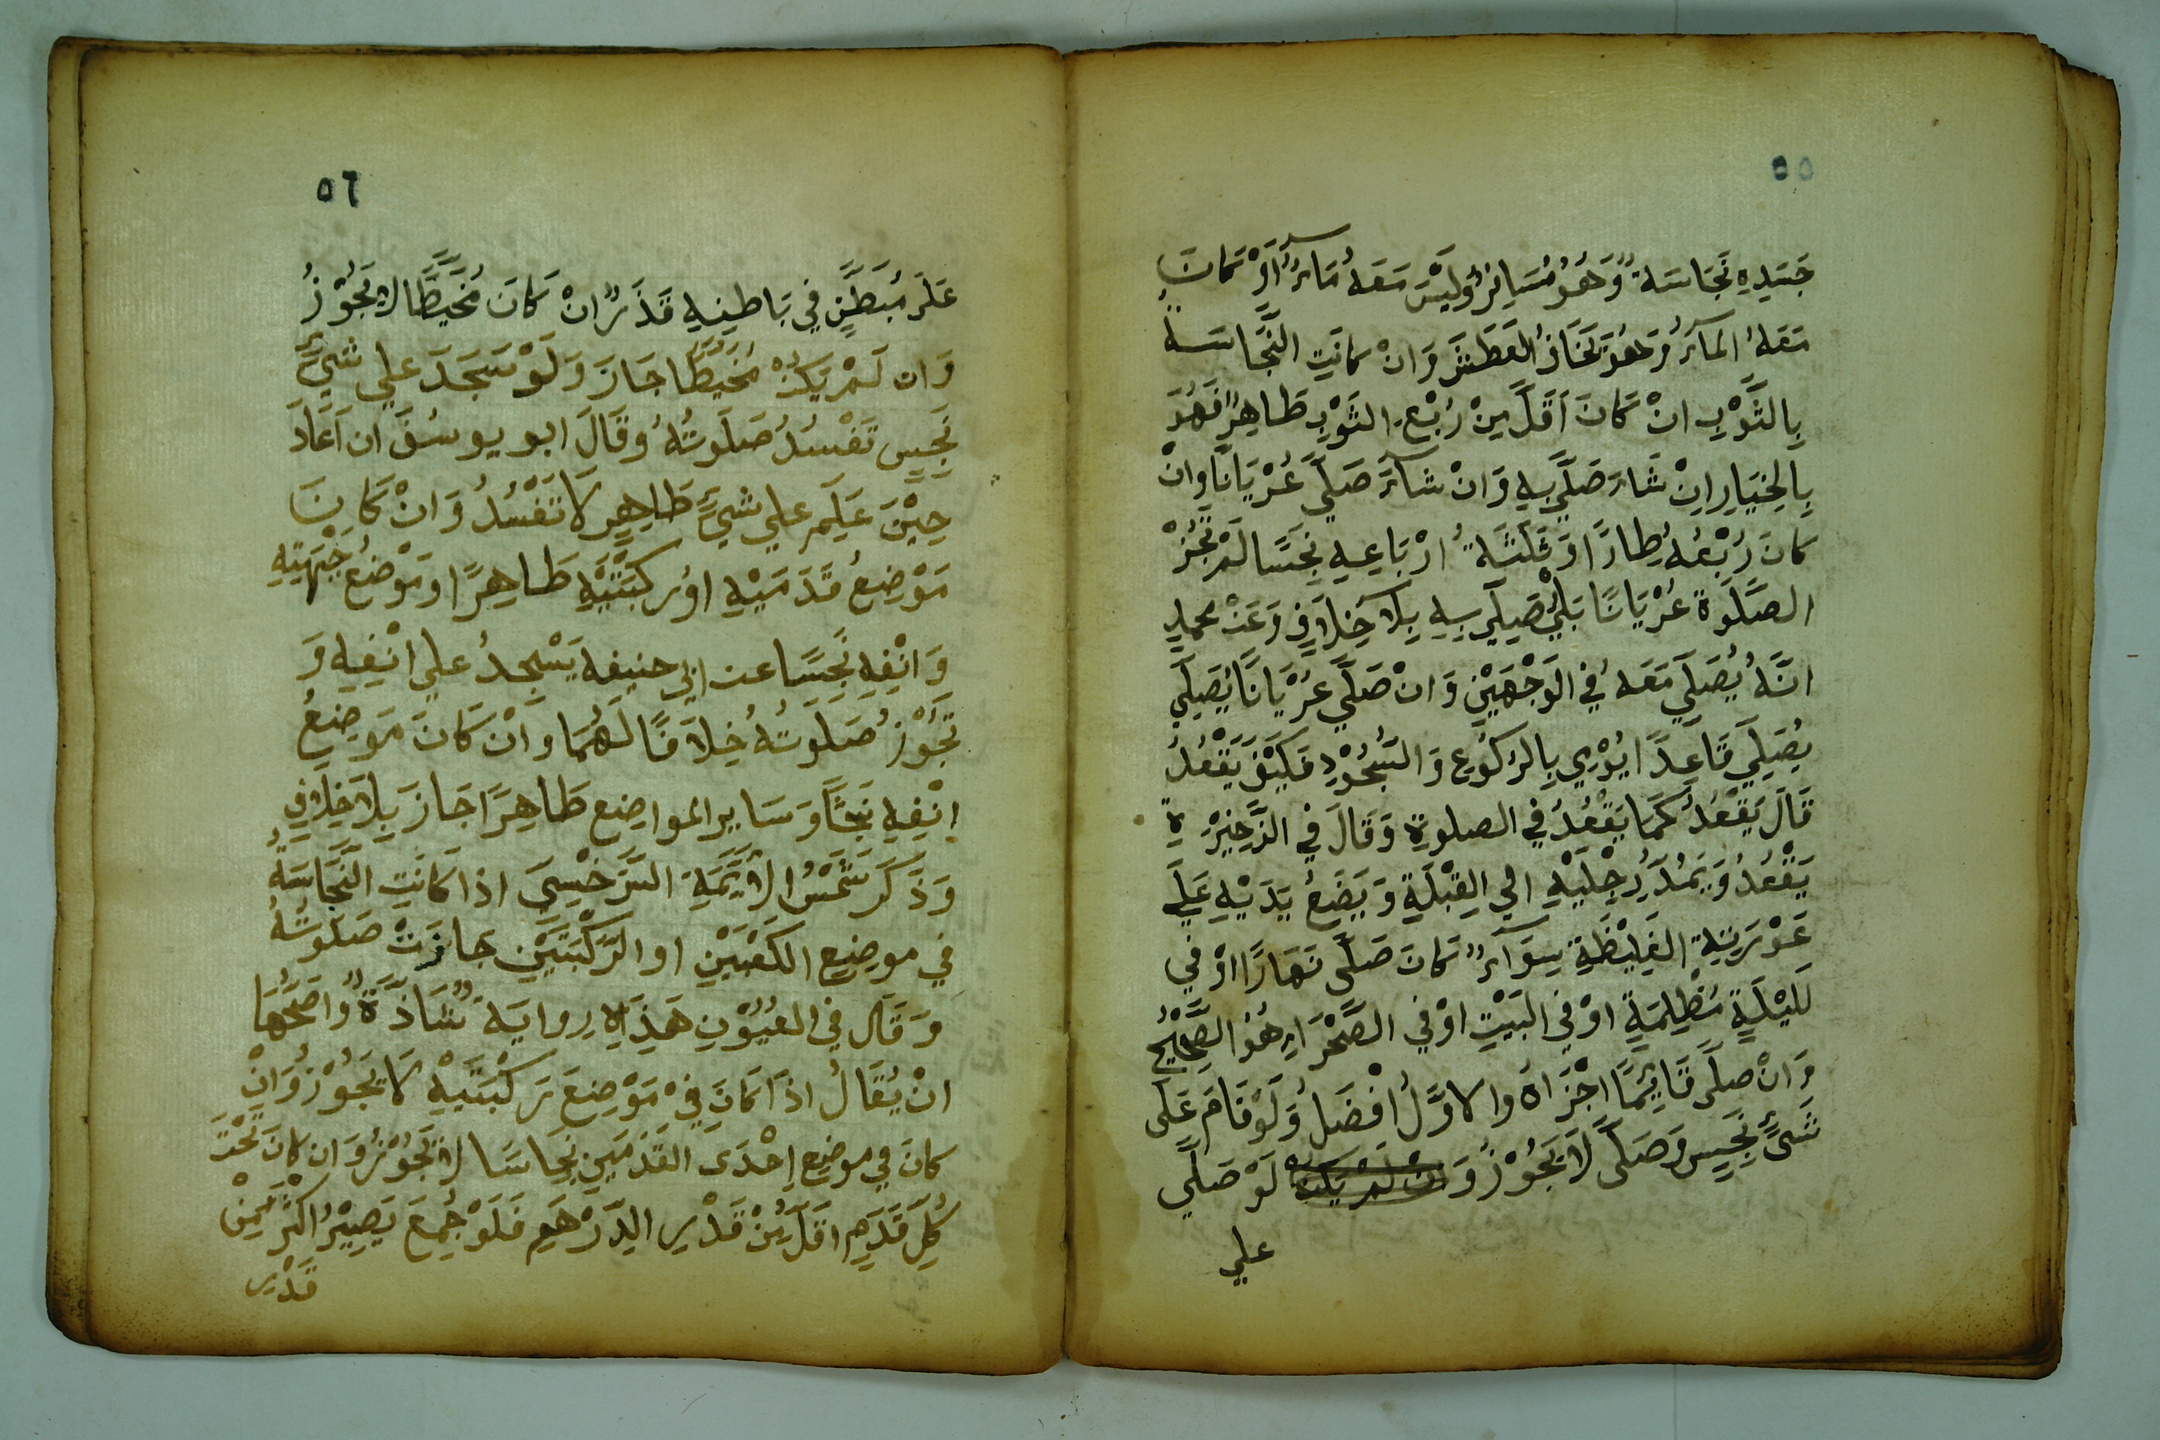 ٥٥
جَسَدِهِ نَجَاسَةٌ وَهُوَ مُسَافِرٌ وَلَيْسَ مَعَهُ مَاءٌ اَوْ كَانَ
مَعَهُ الْمَآءُ وَهُوَ يَخَافُ الْعَطَشَ وَانْ كانَتِ النَّجَاسَةُ
بِالثَّوْبِ انْ كَانَ اَقَلَّ مِنْ رُبْعِ الثَّوْبِ طَاهِرٌ فَهُوَ
بِالْخِيَارِ اِنْ شَاءَ صَلَّي بِهِ وَانْ شآءَ صَلَّي عُرْيَانًا وَانْ
كانَ رُبْعُهُ طَارًا اَوْ ثَلَثَةُ ارْبَاعِهِ نَجِسًا لَمْ تَجُزْ
الصَّلَوة عُرْيَانًا بَلْ يُصَلِّي بِهِ بِلَا خِلَافٍ وَعَنْ محمدٍ
انَّهُ يُصَلِّي مَعَهُ فِي الوَجْهَيْنِ وَانْ صَلَّي عُرْيَانًا يُصَلِّي
يُصَلِّي قَاعِدًا يُوْمِي بِالرُّكُوْعِ وَالسُّجُوْدِ فَكَيْفَ يَقْعُدُ
قَالَ يَقْعُدُ كَمَا يَقْعُدُ فِي الصلوة وَقَالَ فِي الذَّخِيْرَةِ
يَقْعُدُ وَيَمُدُّ رِجْلَيْهِ الي القِبْلَةِ وَيَضَعُ يَدَيْهِ عَلَي
عَوْرَتِهِ الغَلِيْظَةِ سِوَآءٌ كَانَ صَلَّى نَهَارًا اوْ فِي
لَلَيْلَةٍ مُظْلِمَةٍ اوْ فِي البَيْتِ اوْ فِي الصَّحْرَاءِ هُوَ الصَّحِيْحُ
وَانْ صلَّى قَائِمًا اجْزَاهُ والاوَّلُ افْضَلُ وَلَوْ قَامَ عَلَى
شَيْءٍ نَجِسٍ وَصَلَّى لَا يَجُوْزُ وَانْ لَمْ يَكُنْ لَوْ صَلَّي
علي
٥٦
عَلَى مُبَطَّنٍ فِي بَاطِنِهِ قَذَرٌ انْ كَانَ مُخَيَّطًا لَا يَجُوْزُ
وَان لَمْ يَكُنْ مُخَيَّطًا جَازَ وَلَوْ سَجَدَ علي شَيْءٍ
نَجِسٍ تَفْسُدُ صَلَوتُهُ وقَالَ ابو يوسُفَ ان اَعَادَ
حِيْنَ عَلِمَ علي شيْءٍ طَاهِرٍ لَا تَفْسُدُ وَانْ كَانَ
مَوْضِعُ قَدَمَيْهِ اوْ ركبَتَيْهِ طَاهِرًا وَمَوْضِعُ جَبْهَتِهِ
وَانْفِهِ نَجِسًا عن ابي حنيفه يَسْجُدُ علي انْفِهِ وَ
تَجُوْزُ صَلَوتُهُ خِلَافًا لَهُمَا وانْ كَانَ مَوضِعُ
انْفِهِ نَجِسًا وَسَاير المواضِع طَاهِرًا جَازَ بِلَا خِلَافٍ
وَذَكَرَ شَمْسُ الْاَئِمَّةِ السَّرَخْسِي اذا كَانَتِ النَّجَاسَةُ
فِي موضِعِ الكَفَّيْنِ او الرُّكْبَتَيْنِ جَازَتْ صَلَوتُهُ
وَقَال فِي العُيُوْنِ هَذِهِ رِوايَةٌ شَاذَّةٌ وَاصَحُّهَا
انْ يُقَالُ اذَا كَانَ فِيْ مَوْضِعَ رَكْبَتَيْهِ لَا يَجُوْزُ وَانْ
كانَ فِي موضِعِ اِحْدَى القَدَمَيْنِ نَجَاسَا لَا تَجُوْزُ وَان كانَ تَحْتَ
كُلِّ قَدَمٍ اقَلَّ مِنْ قَدْرِ الدِّرْهَمِ فَلَوْ جُمِعَ يَصِيْرُ اكْثَرَ مِنْ
قَدْرِ